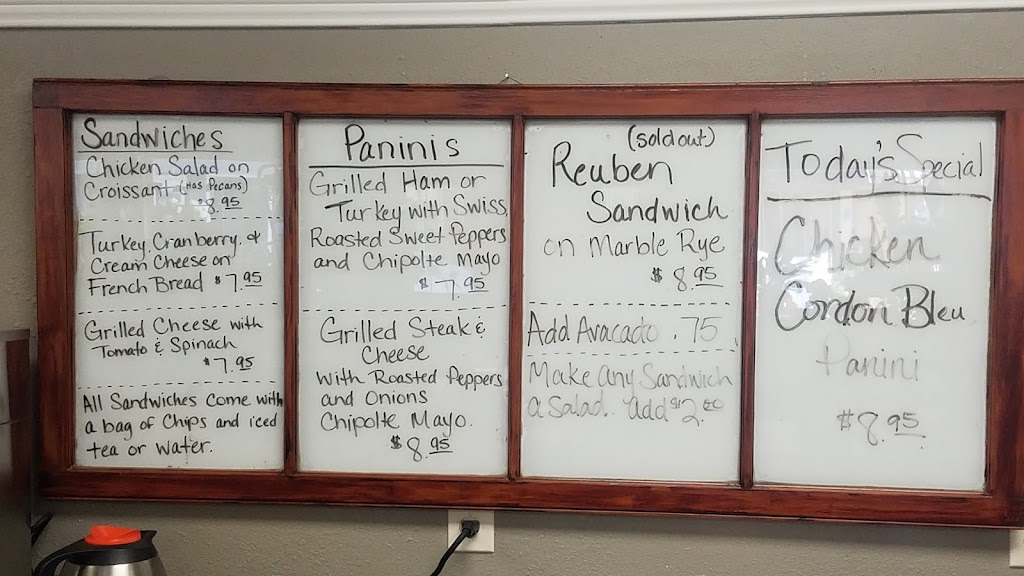 Sandwiches
Chicken Salad on
Croissant (Has Pecans)
$8.95
Turkey, Cranberry, &
Cream Cheese on
French Bread $7.95
Grilled Cheese with
Tomato & Spinach
$7.95
All Sandwiches come with
a bag of Chips and iced
tea or water.
Paninis
Grilled Ham or
Turkey with Swiss,
Roasted Sweet Peppers
and Chipolte Mayo
$7.95
Grilled Steak &
Cheese
with Roasted Peppers
and Onions
Chipolte Mayo.
$8.95
(sold out)
Reuben
Sandwich
on Marble Rye
$8.95
Add Avacado .75
Make any Sandwich
a Salad. add $2.00
Today's Special
Chicken
Cordon Bleu
Panini
$8.95